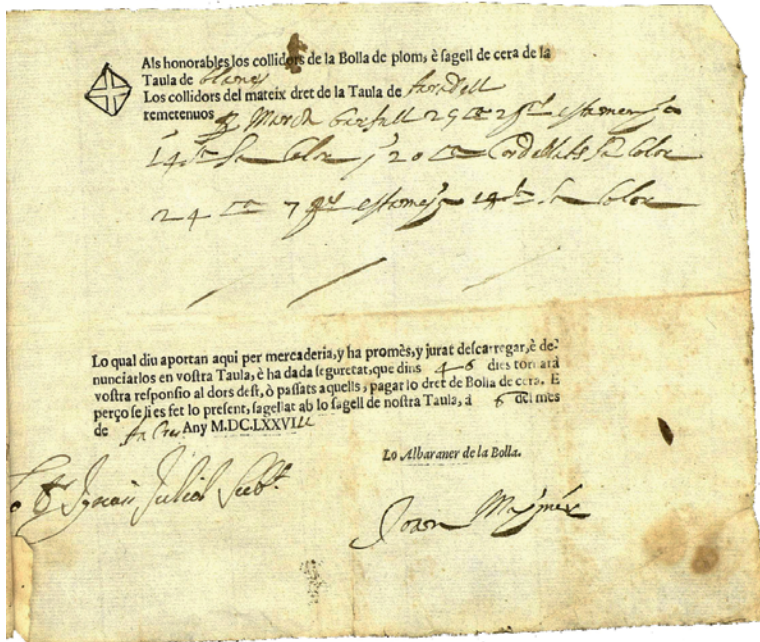 Als honorables los collidors de la Bolla de plom, è sagell de cera de la
Taula de blanes
Los collidors del mateix dret de la Taula de taradell
remetenuos 25 ca
14 Sa Color y 20 ca Cordellats Sa Color
24 ca 7 Sa Color
Lo qual diu aportan aqui per mercaderia, y ha promès, y jurat descarregar, è de-
nunciarlos en vostra Taula, è ha dada seguretat, que dins 46 dies tornarà
vostra responsio al dors dest, ò passats aquells, pagar lo dret de Bolla de cera. E
perço se li es fet lo present, sagellat ab lo sagell de nostra Taula, à 6 del mes
de Any M.DC.LXXVIII
Lo Albaraner de la Bolla.
Juliol
Joan